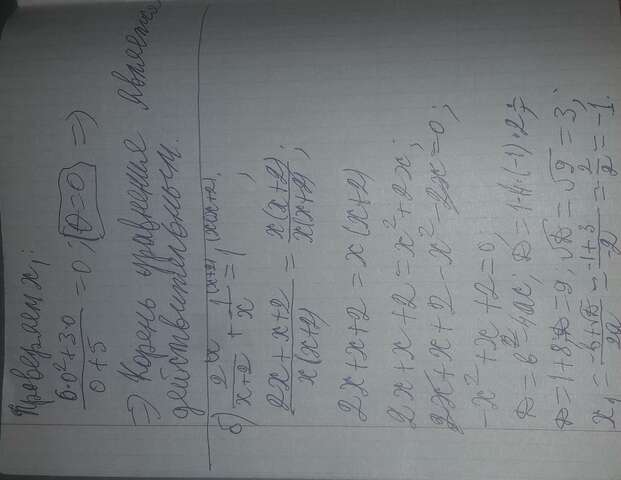 Проверяем x₁:
(6·0²+30)/(0+5) = 0; (0=0) =>
=> Корень уравнения является
действительным.
б) 2/(x+2) + 1/x = 1
(2x+x+2)/(x(x+2)) = (x(x+2))/(x(x+2));
2x+x+2 = x(x+2)
2x+x+2 = x²+2x;
2x+x+2-x²-2x=0;
-x²+x+2=0;
D=b²-4ac; D=1-4·(-1)·2;
D=1+8; D=9; √D=√9=3;
x₁ = (-b+√D)/2a = (-1+3)/-2 = 2/-2 = -1.